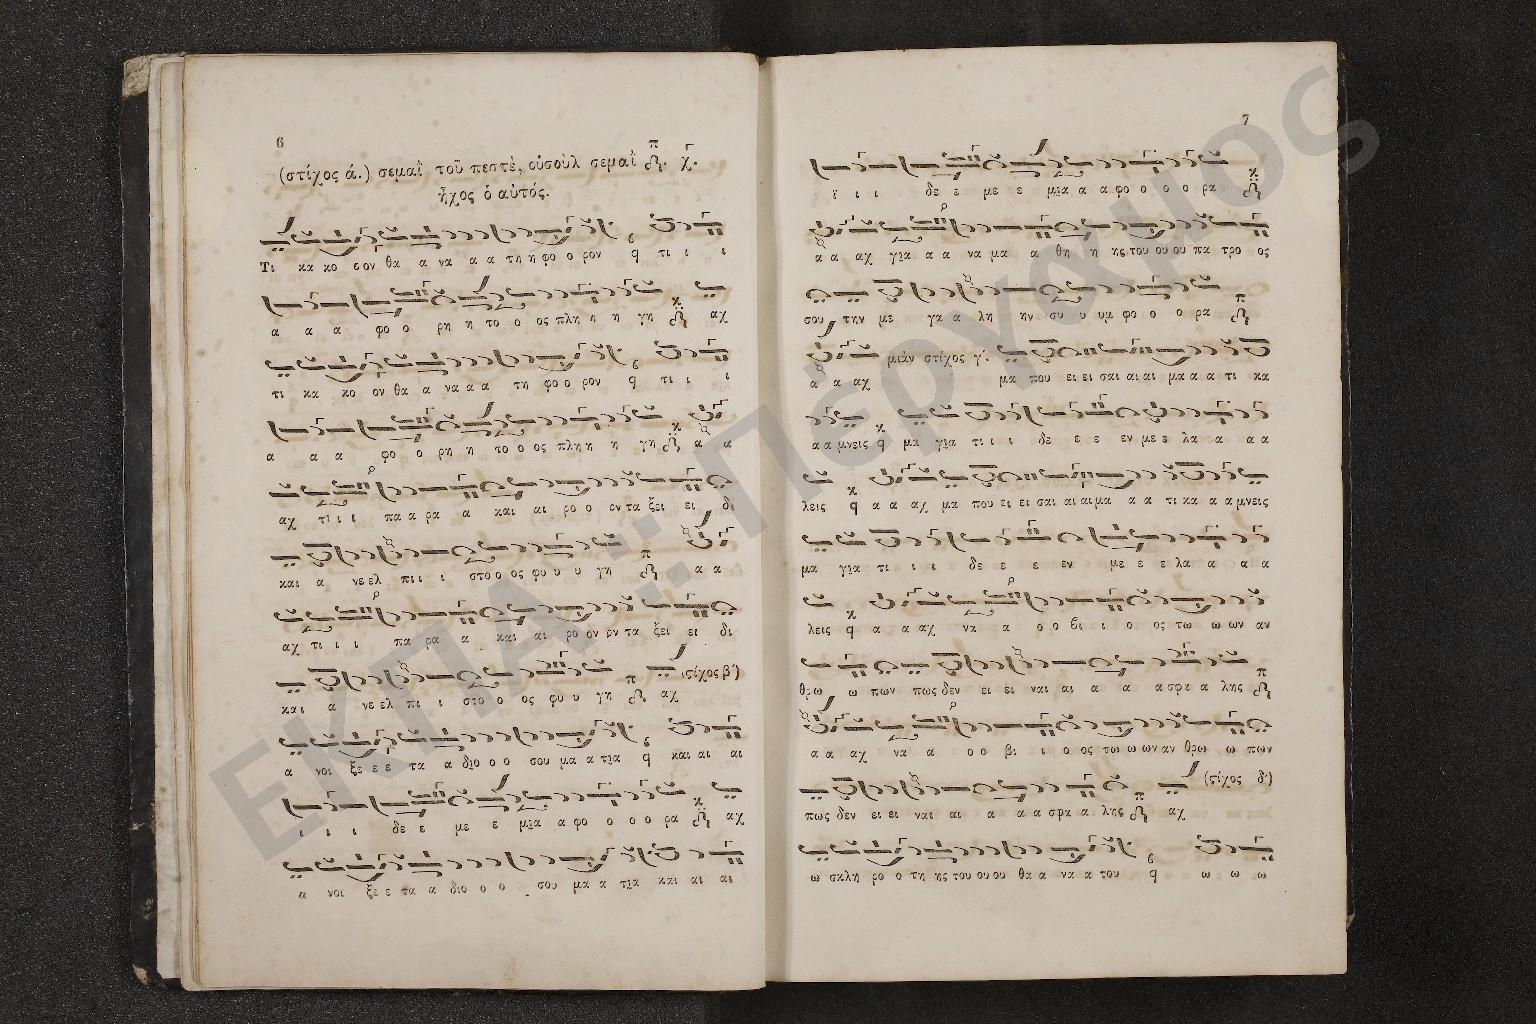 6
(στίχος ά.) σεμαῒ τοῦ πεστὲ, οὐσοὺλ σεμαῒ
ἦχος ὁ αὐτός.
Τι κα κο ε ον θα α να α α τη η φο ο ρον τι ι ι
α α α φο ο ρη η το ο ος πλη η η γη αχ
τι κα κο ον θα α να α α τη φο ο ρον τι ι ι
α α α φο ο ρη η το ο ος πλη η η γη α α
αχ τι ι ι πα α ρα α και αι ρο ο ον τα ξει ει δι
και α νε ελ πι ι ι στο ο ος φυ υ υ γη α α
αχ τι ι ι πα ρα α και αι ρο ον ον τα ξει ει δι
και α νε ελ πι ι στο ο ος φυ υ γη αχ (στίχος β΄)
α νοι ξε ε ε τα α διο ο ο σου μα α τια και αι αι
ι ι ι δε ε με ε μια α φο ο ο ο ρα αχ
α νοι ξε ε τα α διο ο ο σου μα α τια και αι αι
7
ι ι ι δε ε με ε μια α α φο ο ο ο ρα
α α αχ για α α να μα α θη η ης του ου ου πα τρο ος
σου την με γα α λη ην συ υ υμ φο ο ο ρα
α α αχ μιὰν στίχος γ΄. μα που ει ει σαι αι αι μα α α τι κα
α α μνεις μα για τι ι ι δε ε ε εν με ε λα α α α
λεις α α αχ μα που ει ει σαι αι αι μα α α τι κα α α μνεις
μα για τι ι ι δε ε ε εν με ε ε λα α α α
λεις α α α αχ να α ο ο βι ι ο ος τω ω ων αν
θρω ω πων πως δεν ει ει ναι αι α α ασφα α λης
α α αχ να α ο ο βι ι ο ος τω ω ων αν θρω ω πων
πως δεν ει ει ναι αι α α ασφα α λης αχ (στίχος δ΄)
ω σκλη ρο ο τη ης του ου ου θα α να α του ω ω ω
ΕΚΠΑ :: Πέργαμος